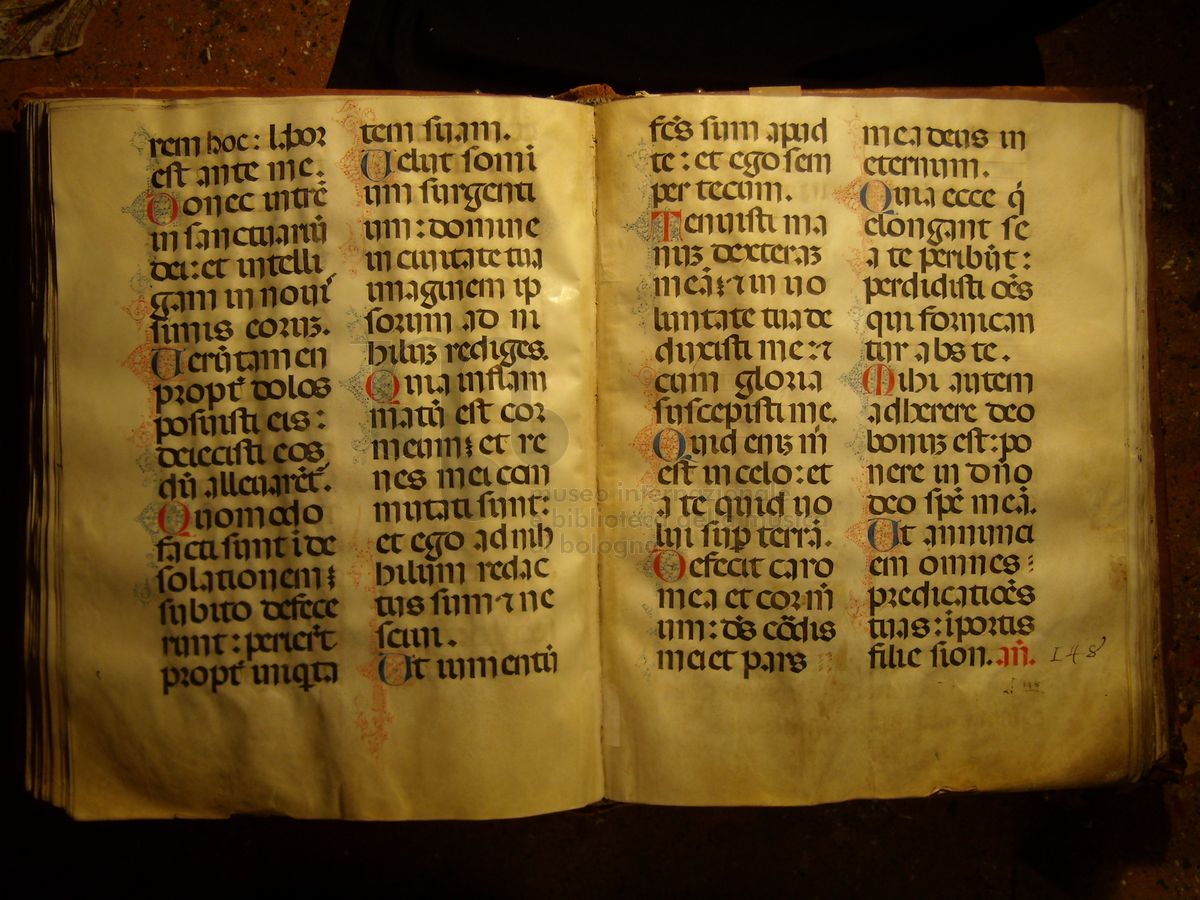 rem hoc: labor
est ante me.
Donec intrē
in sanctuariū
dei: et intelli
gam in novi
simis eorꝫ.
Uerūtamen
propt̄ dolos
posuisti eis:
deiecisti eos
dū allevarēt̄.
Quomodo
facti sunt ī de
solationem:
subito defece
runt: periert̄
propt̄ iniqta
tem suam.
Uelut somi
um surgenti
um: domine
in civitate tua
imaginem ip
sorum ad ni
hilūꝫ rediges.
Quia inflam
matū est cor
meum: et re
nes mei com
mutati sunt:
et ego ad nih
hilum redac
tus sum ⁊ ne
scivi.
Ut iumentū
fc̄s sum apud
te: et ego sem
per tecum.
Tenuisti ma
nuꝫ dexteraꝫ
meā: ⁊ in vo
luntate tua de
duxisti me: ⁊
cum gloria
suscepisti me.
Quid eniꝫ m̄
est in celo: et
a te quid vo
lui sup̄ terrā.
Defecit caro
mea et cor m̄
um: ds̄ cōdis
mei et pars
mea deus in
eternum.
Quia ecce q̄
elongant se
a te peribūt:
perdidisti oēs
qui fornican
tur abs te.
Mihi autem
adherere deo
bonuꝫ est: po
nere in dn̄o
deo spē meā.
Ut annunci
em omnes
predicatiōes
tuas: ī portis
filie sion. an̄.
148
museo internazionale
biblioteca della musica
bologna